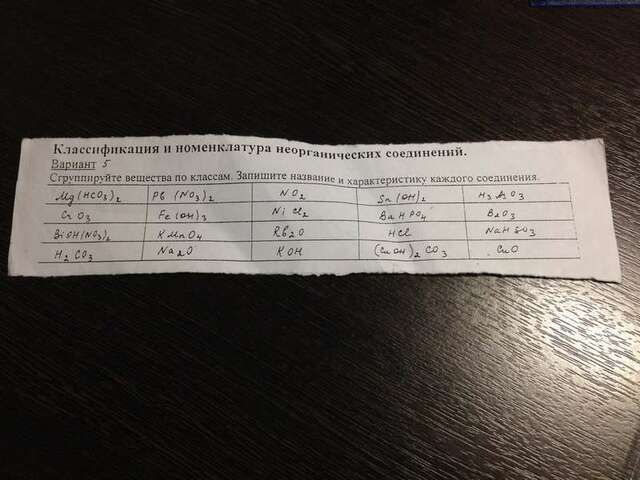 Классификация и номенклатура неорганических соединений.
Вариант 5
Сгруппируйте вещества по классам. Запишите название и характеристику каждого соединения.
Mg(HCO3)2 Pb(NO3)2 NO2 Sn(OH)2
CrO3 Fe(OH)3 NiCl2 BaHPO4 B2O3
BiOH(NO3)2 KMnO4 Rb2O HCl NaHSO3
H2CO3 Na2O KOH (CuOH)2CO3 CuO